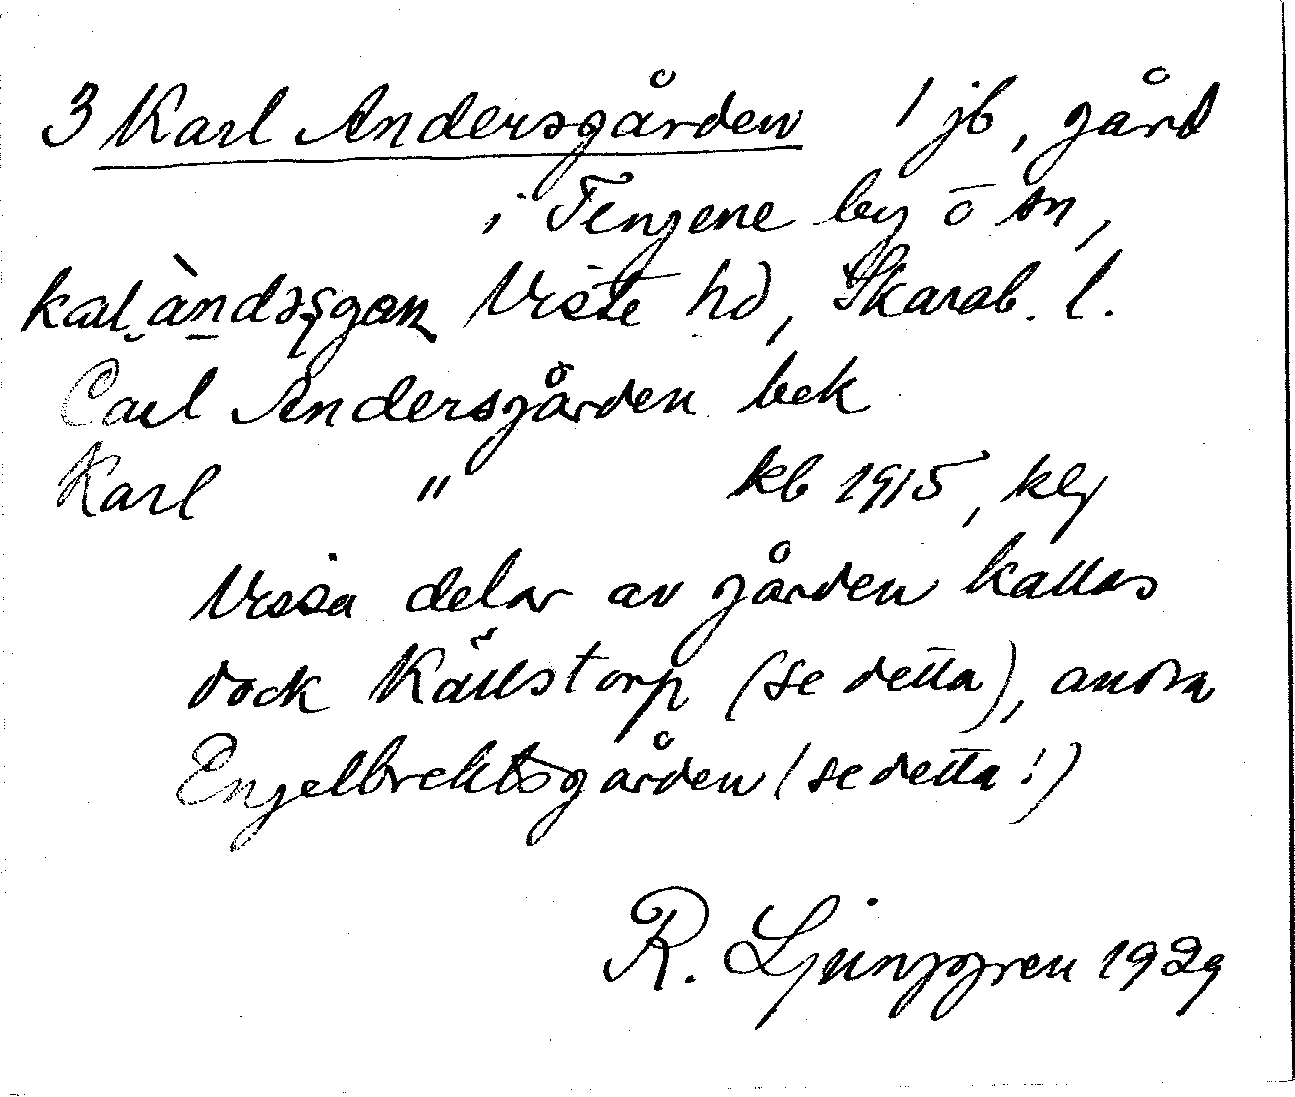 3 Karl Andersgården 1 jb, gård
i Tengene by o sn,
Viste hd, Skarab. l.
Carl Andersgården bek
Karl " kb 1915, klg
Vissa delar av gården kallas
dock Källstorp (se detta), andra
Engelbrektsgården (se detta!)
R. Ljunggren 1929